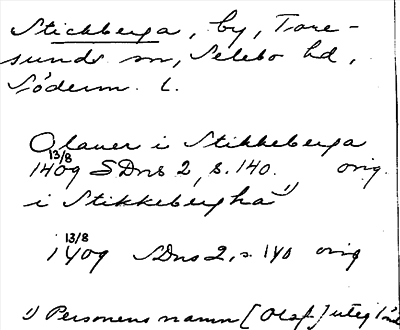 Stickberga, by, Tore-
sunds sn, Selebo hd,
Söderm. l.
Olauer i Stikkeberga
13/8
1409 SDns 2, s. 140. orig.
i Stikkebergha 1)
13/8
1409 SDns 2, s. 140 orig
1) Personens namn [Olaf]